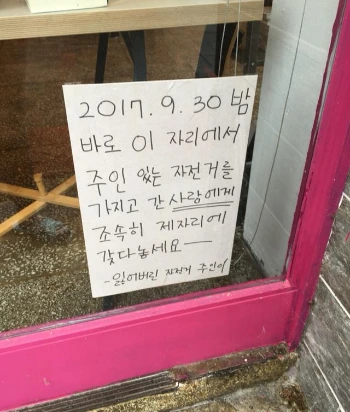 2017. 9. 30 밤
바로 이 자리에서
주인 있는 자전거를
가지고 간 사람에게
조속히 제자리에
갖다놓세요 —
- 잃어버린 자전거 주인이